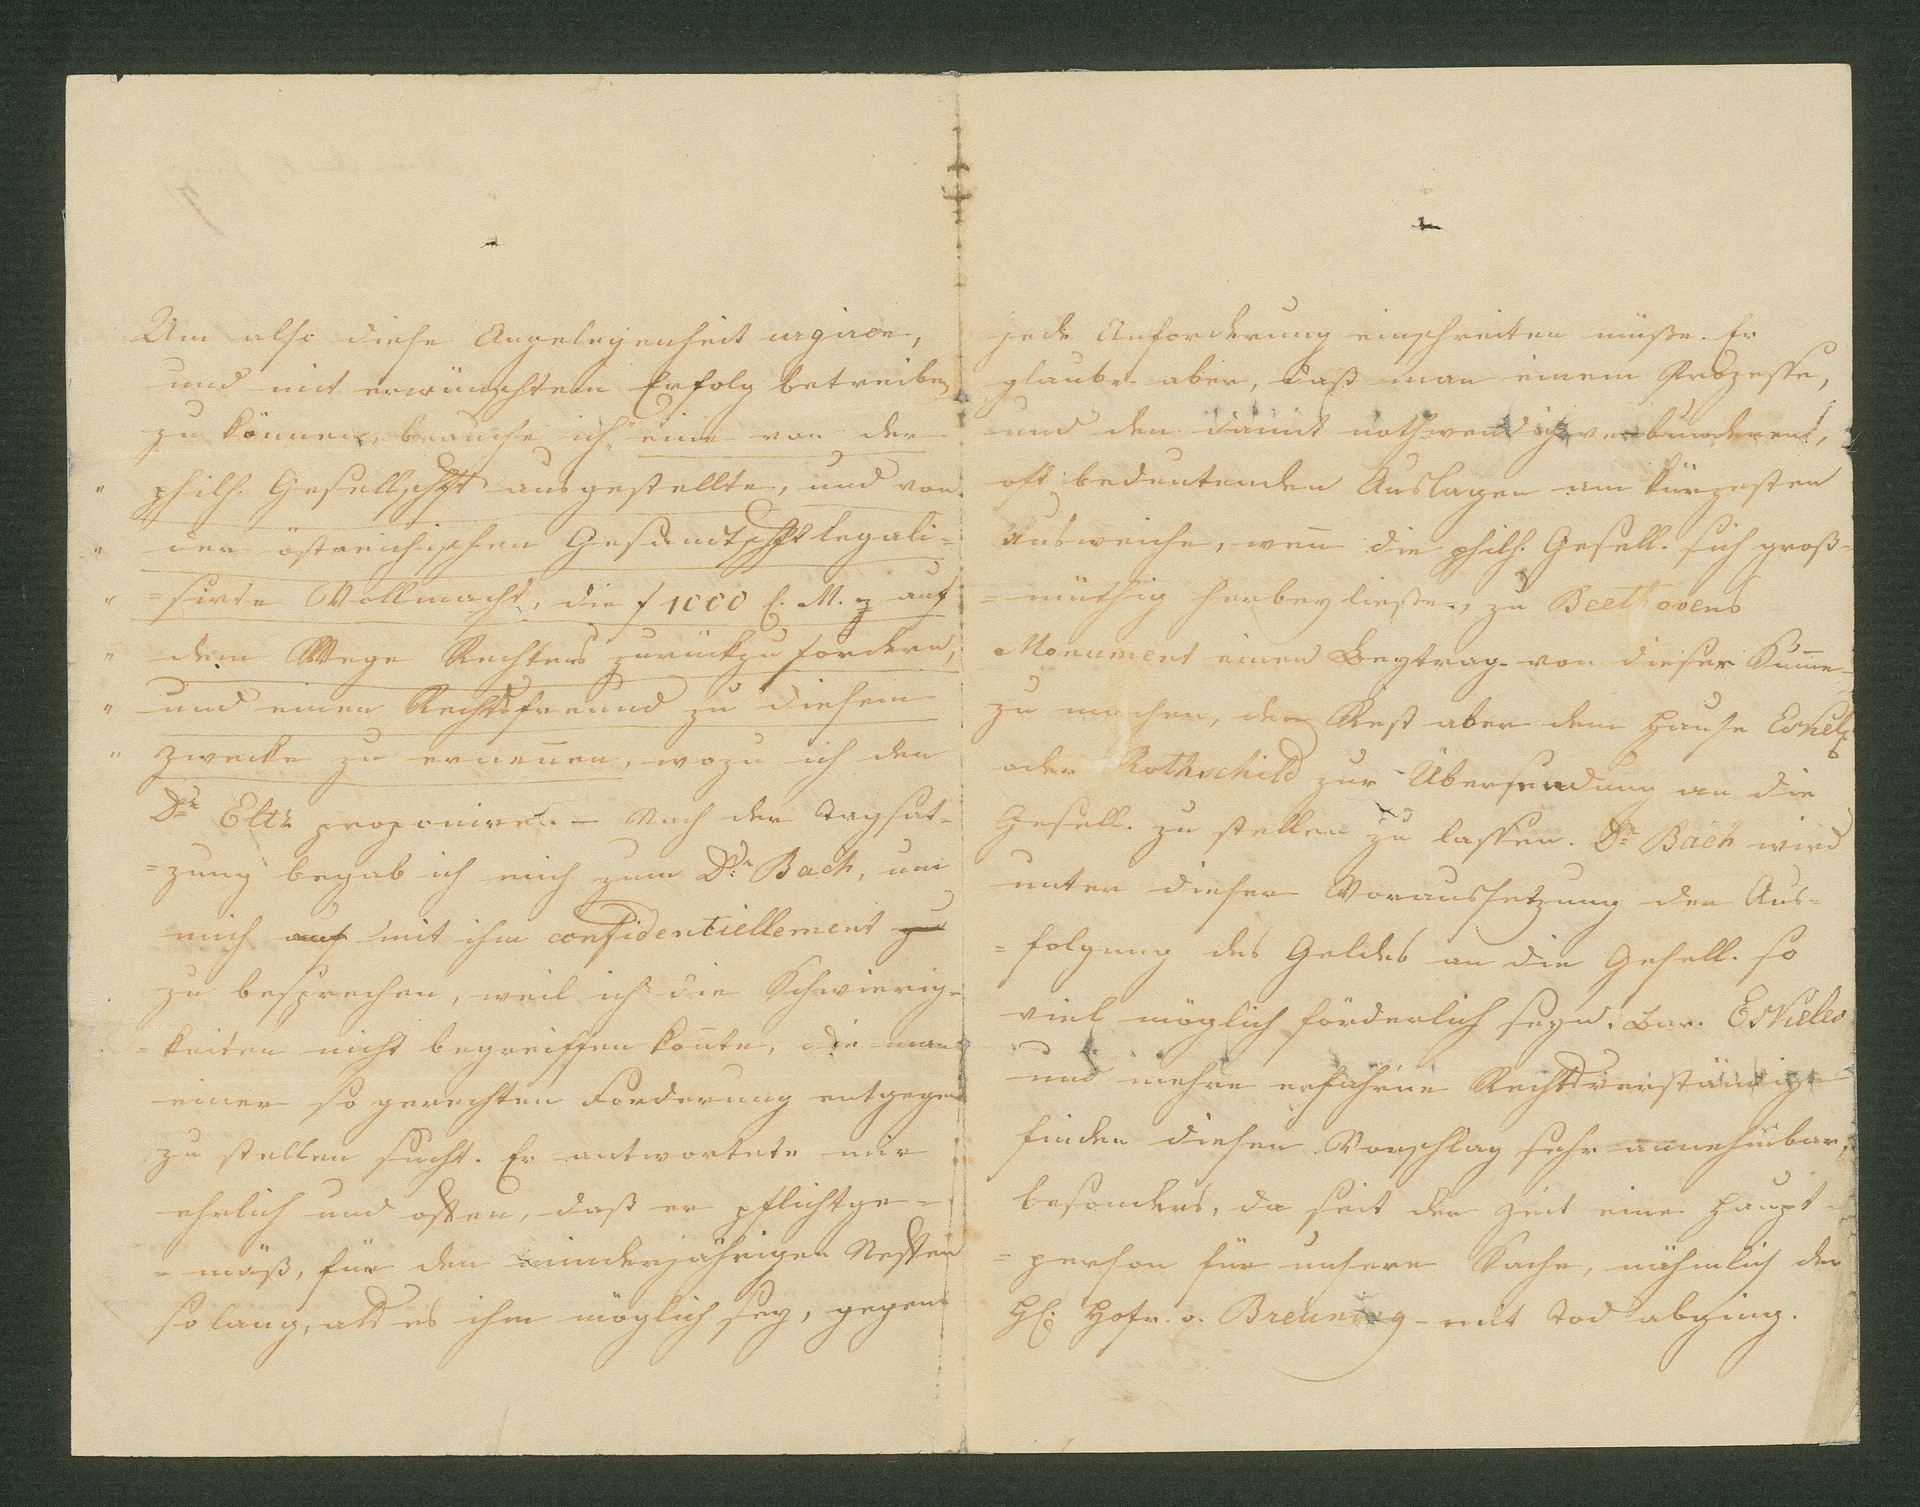 Um also diese Angelegenheit urgiren,
und mit erwünschtem Erfolg betreiben
zu können, brauche ich „eine von der
„ philh. Gesellschft ausgestellte, und von
„ der östreichischen Gesandtschft legali-
„ =sirte Vollmacht, die f 1000 C. M. auf
„ dem Wege Rechtens zurückzufordern,
„ und einen Rechtsfreund zu diesem
„ Zwecke zu ernen̅en, wozu ich den
Dr. Eltz proponire. – Nach der Tagsat-
=zung begab ich mich zum Dr. Bach, um
mich auf mit ihm confidentiellement zu
zu besprechen, weil ich die Schwierig-
=keiten nicht begreiffen kon̅te, die man
einer so gerechten Forderung entgegen
zu stellen sucht. Er antwortete mir
ehrlich und offen, daß er pflichtge-
=mäß, für den minderjährigen Neffen
so lang, als es ihm möglich sey, gegen
jede Anforderung einschreiten müße. Er
glaube aber, daß man einem Prozesse,
und den damit nothwendig verbundenen,
oft bedeutenden Auslagen am kürzesten
ausweiche, wen̅ die philh. Gesell. sich groß-
=müthig herbey ließe, zu Beethovens
Monument einen Beytrag von dieser Sum̅e
zu machen, den Rest aber dem Hause Eskeles
oder Rothschild zur Übersendung an die
Gesell. zu stellen zu lassen. Dr. Bach wird
unter dieser Voraussetzung der Aus-
=folgung des Geldes an die Gesell. so
viel möglich förderlich seyn. Bar. Eskeles
und mehre erfahrne Rechtsverständige
finden diesen Vorschlag sehr annehmbar,
besonders, da seit der Zeit eine Haupt-
=person für unsere Sache, nähmlich der
H. Hofr. v. Breuning – mit Tod abging.